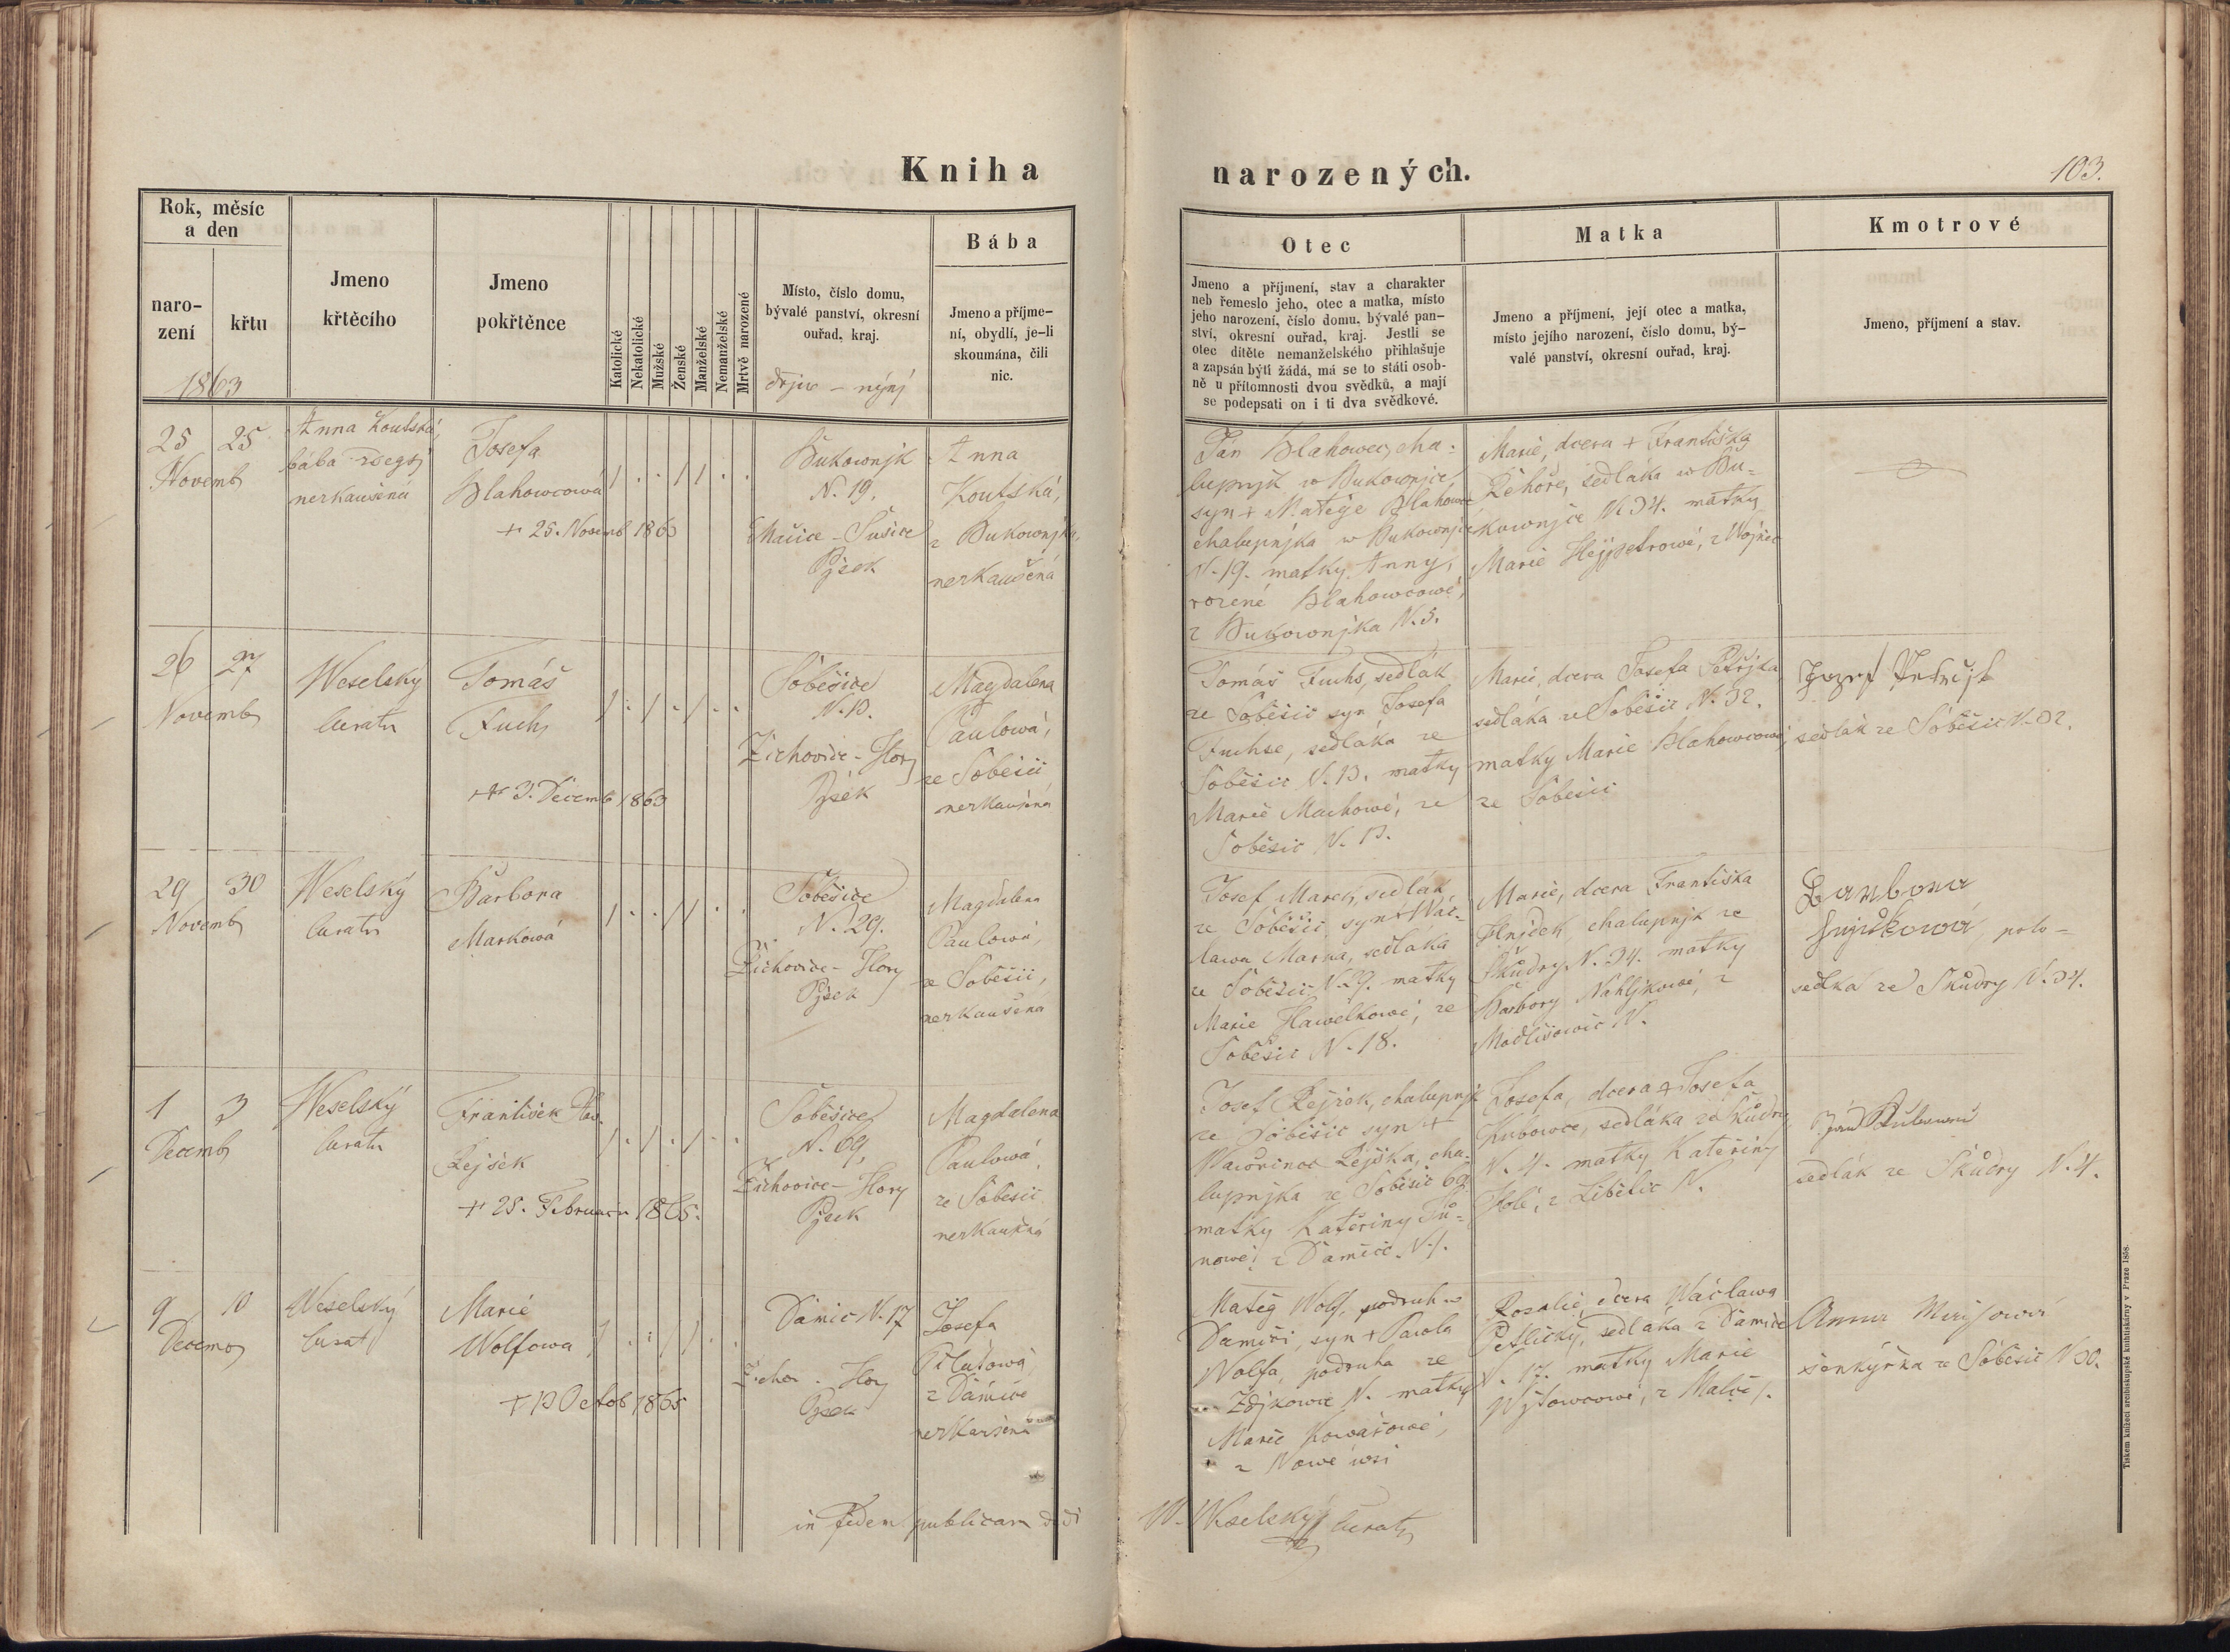 Kniha
narozených.
103.
Rok, měsíc
a den
naro-
zení
křtu
1863
Jmeno
křtěcího
Jmeno
pokřtěnce
Katolické
Nekatolické
Mužské
Ženské
Manželské
Nemanželské
Mrtvě narozené
Místo, číslo domu,
bývalé panství, okresní
ouřad, kraj.
dřjw – nynj
Bába
Jmeno a příjme-
ní, obydlí, je-li
skoumána, čili
nic.
Otec
Jmeno a příjmení, stav a charakter
neb řemeslo jeho, otec a matka, místo
jeho narození, číslo domu, bývalé pan-
ství, okresní ouřad, kraj. Jestli se
otec dítěte nemanželského přihlašuje
a zapsán býti žádá, má se to státi osob-
ně u přítomnosti dvou svědků, a mají
se podepsati on i ti dva svědkové.
Matka
Jmeno a příjmení, její otec a matka,
místo jejího narození, číslo domu, bý-
valé panství, okresní ouřad, kraj.
Kmotrové
Jmeno, příjmení a stav.
25 25
Novemb
Anna Koutská,
bába
nezkaušená
Josefa
Blahowcowá
+ 25. Novemb 1863
Bukownjk
N. 19.
Mačice – Sušice
Pjsek
Anna
Koutská,
z Bukownjka,
nezkaušená
Jan Blahowec, cha-
lupnjk w Bukownjce,
syn + Matěje Blahowce
chalupnjka w Bukownjce
N. 19. matky Anny,
rozené Blahowcowé,
z Bukownjka N. 5.
Marie, dcera + Františka
Řehoře, sedláka w Bu-
kownjce N. 34. matky
Marie Hejpetrowé, z
26 27
Novemb
Weselský
curatu
Tomáš
Fuchs
+ 3. Decemb 1863
Soběšice
N. 13.
Žichovice – Hory
Pjsek
Magdalena
Paulowá,
ze Soběšic
nezkaušená
Tomáš Fuchs, sedlák
ze Soběšic syn Josefa
Fuchse, sedláka ze
Soběšic N. 13. matky
Marie Machowé, ze
Soběšic N. 13.
Marie, dcera Josefa Petřjka
sedláka ze Soběšic N. 32.
matky Marie Blahowcowé,
ze Soběšic
sedlák ze Soběšic N. 32.
29 30
Novemb
Weselský
curatu
Barbora
Markowá
Soběšice
N. 29.
Žichovice – Hory
Pjsek
Magdalena
Paulowá,
ze Soběšic,
nezkaušená
Josef Marek, sedlák
ze Soběšic, syn + Wác-
lawa Marka, sedláka
ze Soběšic N. 29. matky
Marie Hawelkowé, ze
Soběšic N. 18.
Marie, dcera Františka
Hnjdek, chalupnjk ze
Škůdry N. 34. matky
Barbory Nahljkowé, z
N.
Barbora
polo-
sedlka ze Škůdry N. 34.
1 3
Decemb
Weselský
curatu
František
Rejšek
+ 25. Februaru 1865.
Soběšice
N. 69,
Žichovice – Hory
Pjsek
Magdalena
Paulowá,
ze Soběšic
nezkaušená
Josef Rejšek, chalupnjk
ze Soběšic syn +
Wawřince Rejška, cha-
lupnjka ze Soběšic 69
matky Kateřiny Tů-
nowé, z Damíče N. 1.
Josefa, dcera + Josefa
Kubowce, sedláka ze Škůdry
N. 4. matky Kateřiny
Holé, z Liběšic N.
sedlák ze Škůdry N. 4.
9 10
Decemb
Weselský
curat
Marie
Wolfowa
+ 13 Octob 1865
Damic N. 17
Žichov. – Hory
Pjsek
Josefa
z Damíče
nezkaušená
Matěg Wolf, podruh w
Damíči, syn + Pawla
Wolfa, podruha ze
Zdjkowce N. matky
Marie Kowářowé,
z Nowé wsi
Rozalie, dcera Wáclawa
Petličky, sedláka z Damíče
N. 17. matky Marie
Wjtowcowé, z
Anna
šenkýřka ze Soběšic N 30.
in fidem publicam dedi
W. Weselský curatu
Tiskem knížecí arcibiskupské knihtiskárny v Praze 1858.